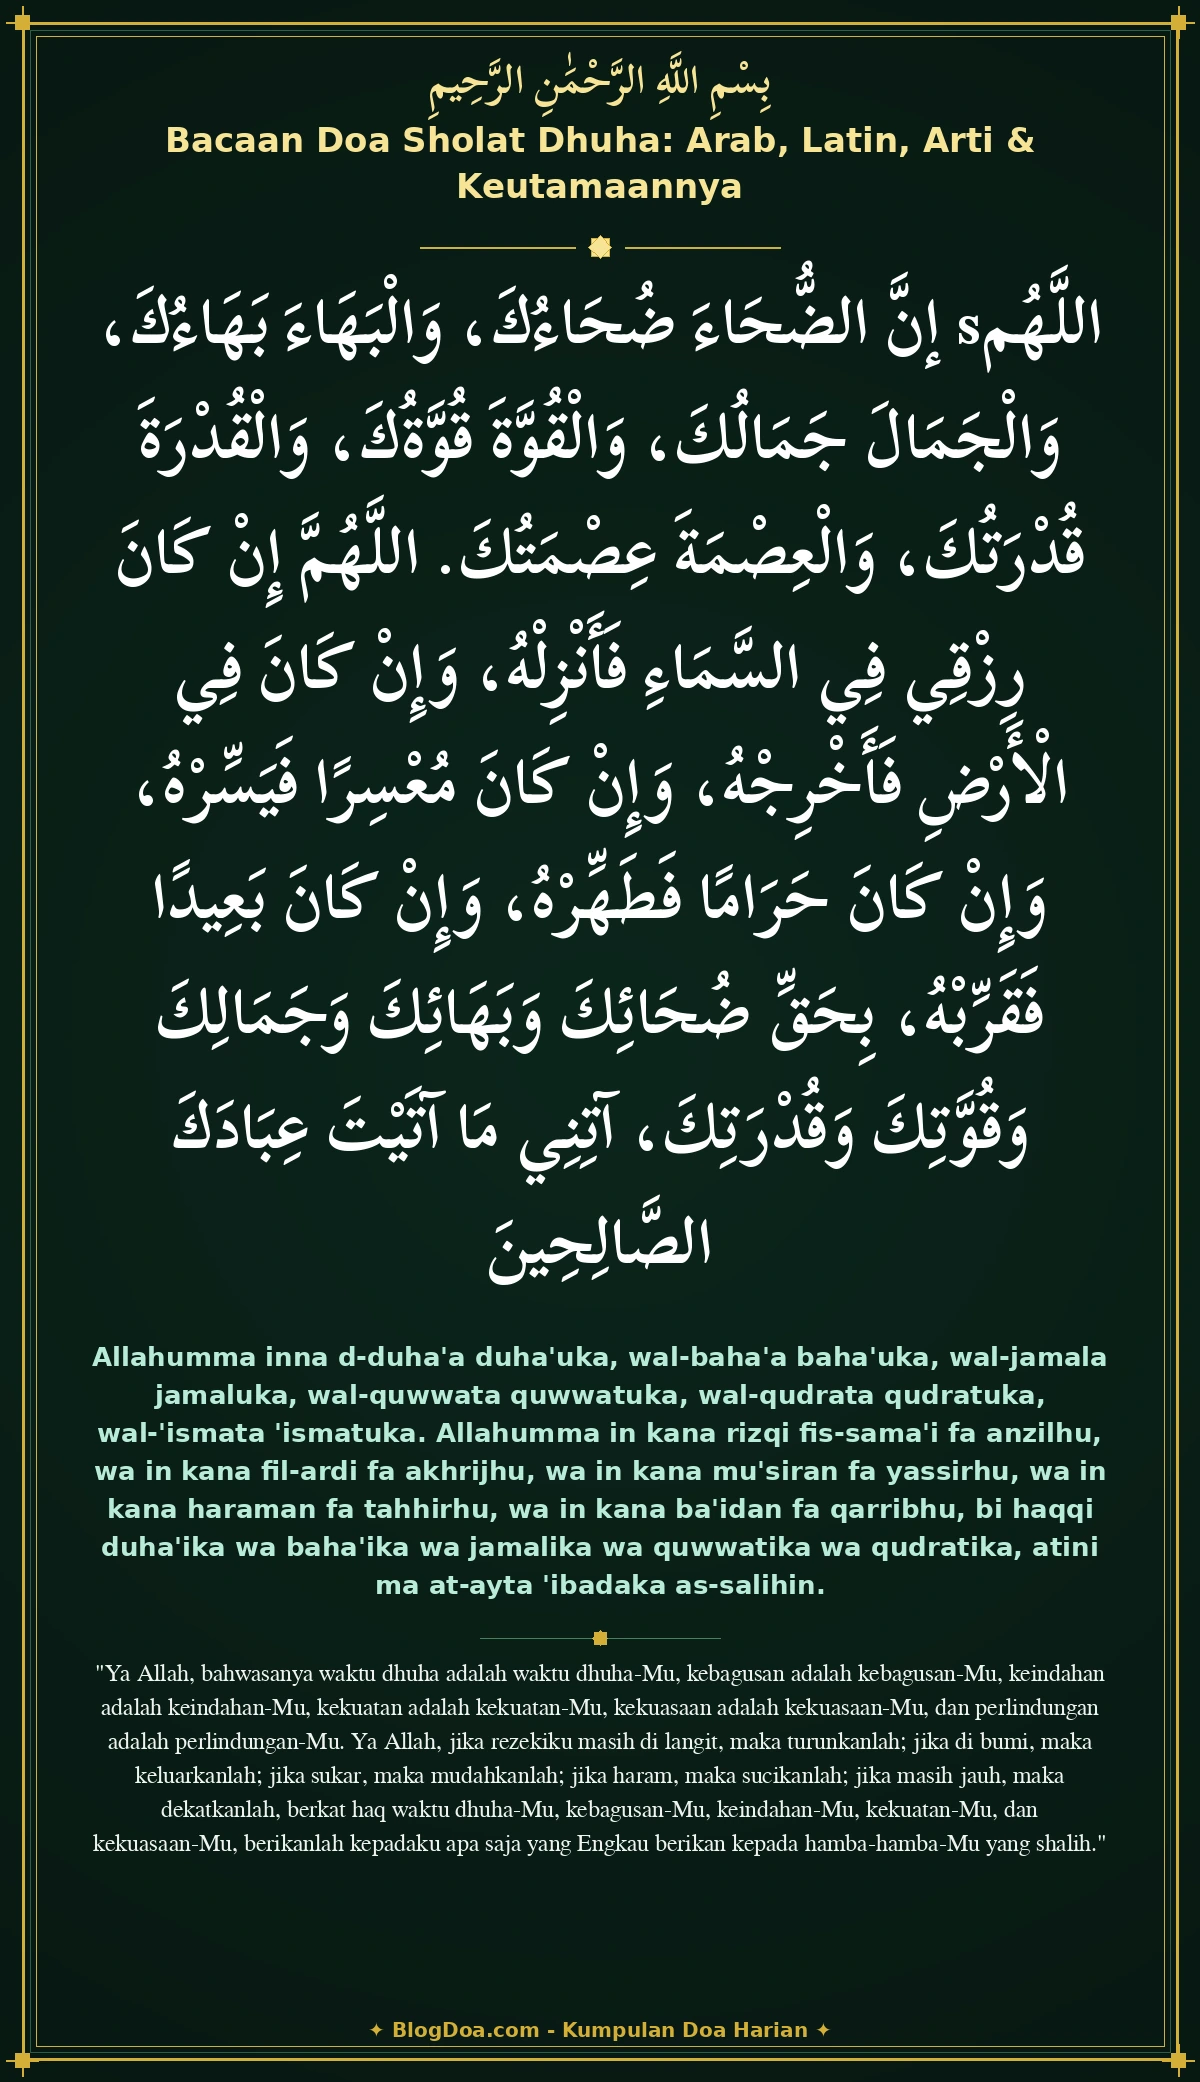 بِسْمِ اللَّهِ الرَّحْمَٰنِ الرَّحِيمِ
Bacaan Doa Sholat Dhuha: Arab, Latin, Arti &
Keutamaannya
اللَّهُمs إِنَّ الضُّحَاءَ ضُحَاءُكَ، وَالْبَهَاءَ بَهَاءُكَ،
وَالْجَمَالَ جَمَالُكَ، وَالْقُوَّةَ قُوَّةُكَ، وَالْقُدْرَةَ
قُدْرَتُكَ، وَالْعِصْمَةَ عِصْمَتُكَ. اللَّهُمَّ إِنْ كَانَ
رِزْقِي فِي السَّمَاءِ فَأَنْزِلْهُ، وَإِنْ كَانَ فِي
الْأَرْضِ فَأَخْرِجْهُ، وَإِنْ كَانَ مُعْسِرًا فَيَسِّرْهُ،
وَإِنْ كَانَ حَرَامًا فَطَهِّرْهُ، وَإِنْ كَانَ بَعِيدًا
فَقَرِّبْهُ، بِحَقِّ ضُحَائِكَ وَبَهَائِكَ وَجَمَالِكَ
وَقُوَّتِكَ وَقُدْرَتِكَ، آتِنِي مَا آتَيْتَ عِبَادَكَ
الصَّالِحِينَ
Allahumma inna d-duha'a duha'uka, wal-baha'a baha'uka, wal-jamala
jamaluka, wal-quwwata quwwatuka, wal-qudrata qudratuka,
wal-'ismata 'ismatuka. Allahumma in kana rizqi fis-sama'i fa anzilhu,
wa in kana fil-ardi fa akhrijhu, wa in kana mu'siran fa yassirhu, wa in
kana haraman fa tahhirhu, wa in kana ba'idan fa qarribhu, bi haqqi
duha'ika wa baha'ika wa jamalika wa quwwatika wa qudratika, atini
ma at-ayta 'ibadaka as-salihin.
"Ya Allah, bahwasanya waktu dhuha adalah waktu dhuha-Mu, kebagusan adalah kebagusan-Mu, keindahan
adalah keindahan-Mu, kekuatan adalah kekuatan-Mu, kekuasaan adalah kekuasaan-Mu, dan perlindungan
adalah perlindungan-Mu. Ya Allah, jika rezekiku masih di langit, maka turunkanlah; jika di bumi, maka
keluarkanlah; jika sukar, maka mudahkanlah; jika haram, maka sucikanlah; jika masih jauh, maka
dekatkanlah, berkat haq waktu dhuha-Mu, kebagusan-Mu, keindahan-Mu, kekuatan-Mu, dan
kekuasaan-Mu, berikanlah kepadaku apa saja yang Engkau berikan kepada hamba-hamba-Mu yang shalih."
✦ BlogDoa.com - Kumpulan Doa Harian ✦